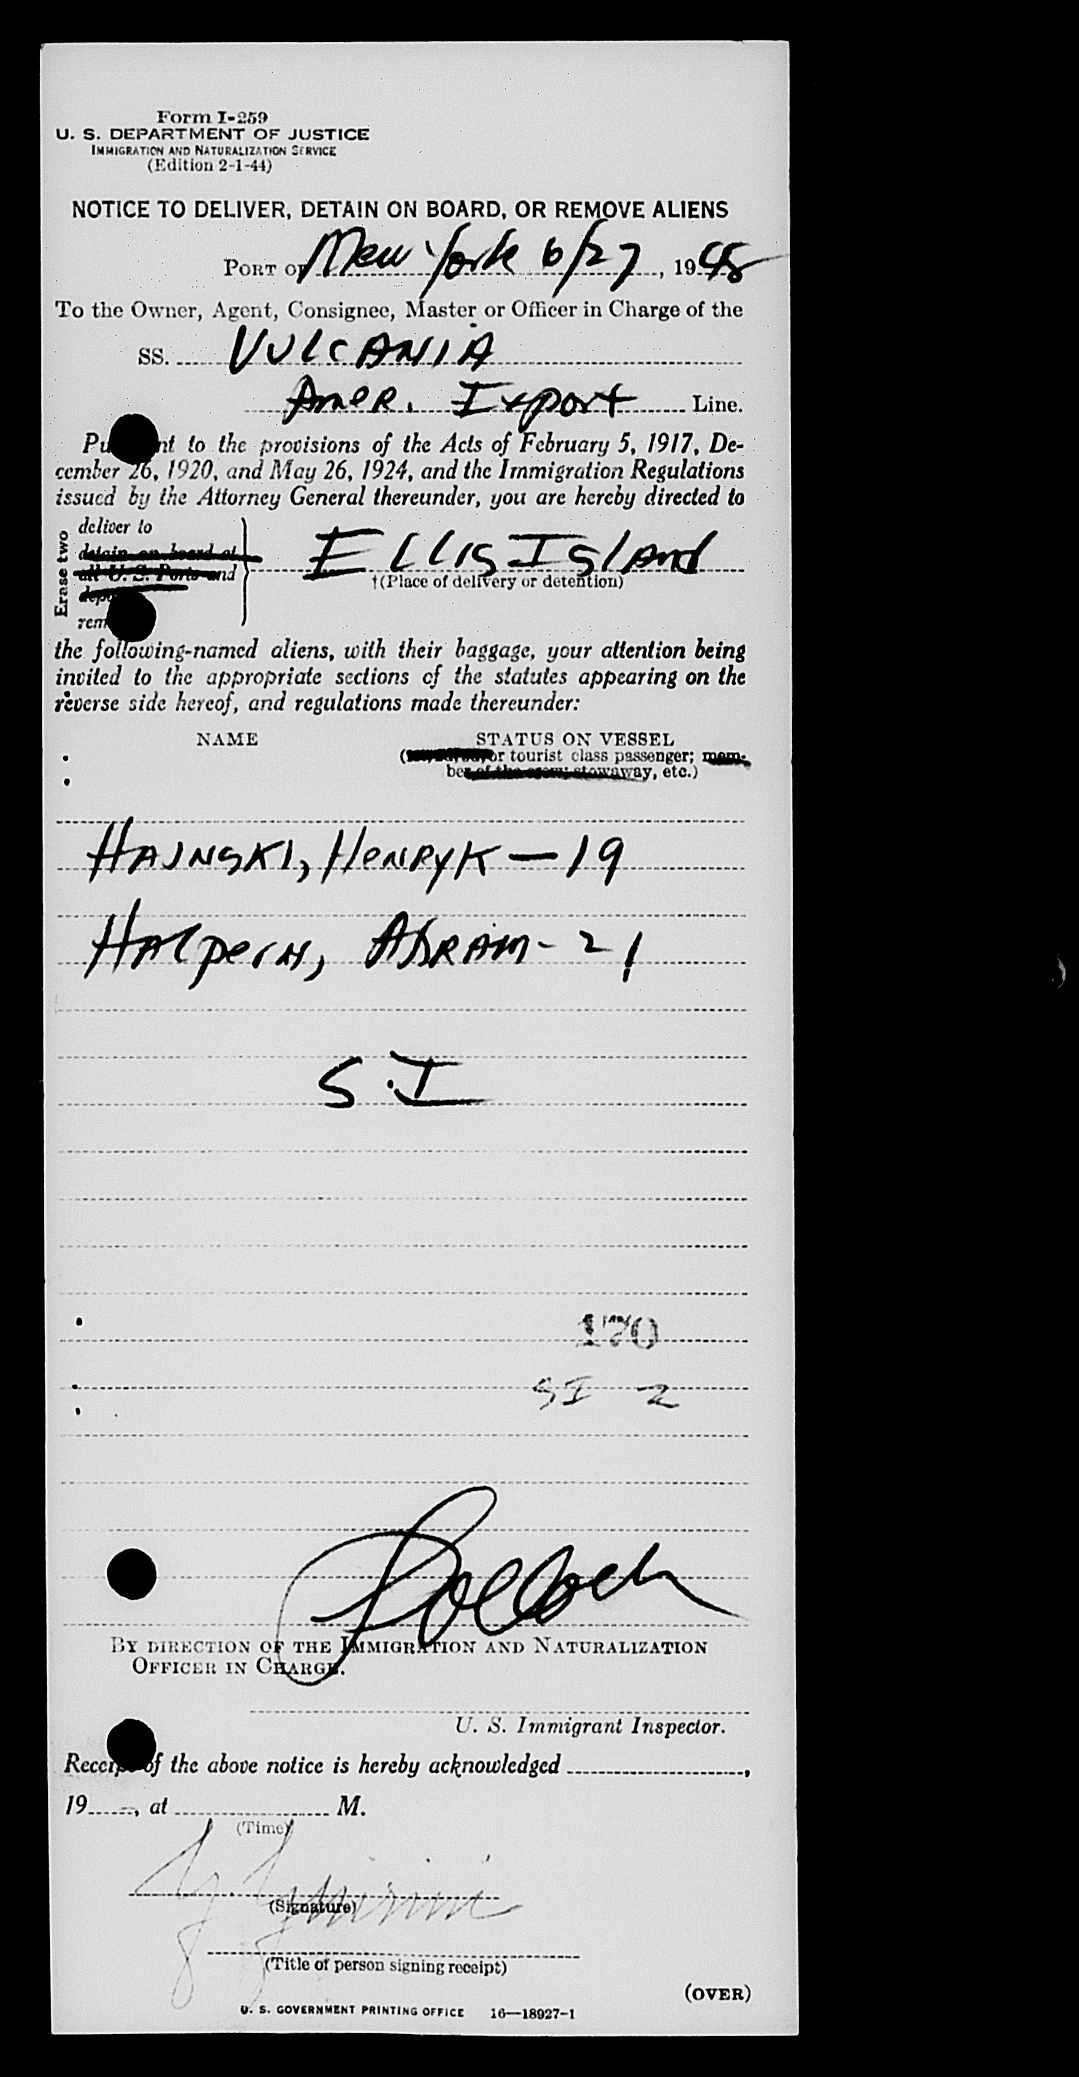 Form I-259
U. S. DEPARTMENT OF JUSTICE
IMMIGRATION AND NATURALIZATION SERVICE
(Edition 2-1-44)
NOTICE TO DELIVER, DETAIN ON BOARD, OR REMOVE ALIENS
PORT OF New York 6/27, 19
To the Owner, Agent, Consignee, Master or Officer in Charge of the
SS. VULCANIA
Amer. Export Line.
to the provisions of the Acts of February 5, 1917, De-
cember 26, 1920, and May 26, 1924, and the Immigration Regulations
issued by the Attorney General thereunder, you are hereby directed to
Erase two
deliver to
detain on board at
all U. S. Ports and
ELLIS ISland
†(Place of delivery or detention)
the following-named aliens, with their baggage, your attention being
invited to the appropriate sections of the statutes appearing on the
reverse side hereof, and regulations made thereunder:
NAME STATUS ON VESSEL
or tourist class passenger; mem-
ber of the crew; stowaway, etc.)
HAJNSKI, HENRYK — 19
HALpern, ABRAM - 21
S.I
170
SI 2
Pollock
BY DIRECTION OF THE IMMIGRATION AND NATURALIZATION
OFFICER IN CHARGE.
U. S. Immigrant Inspector.
Receipt of the above notice is hereby acknowledged ,
19 , at M.
(Time)
(Signature)
(Title of person signing receipt)
(OVER)
U. S. GOVERNMENT PRINTING OFFICE 16—18927-1